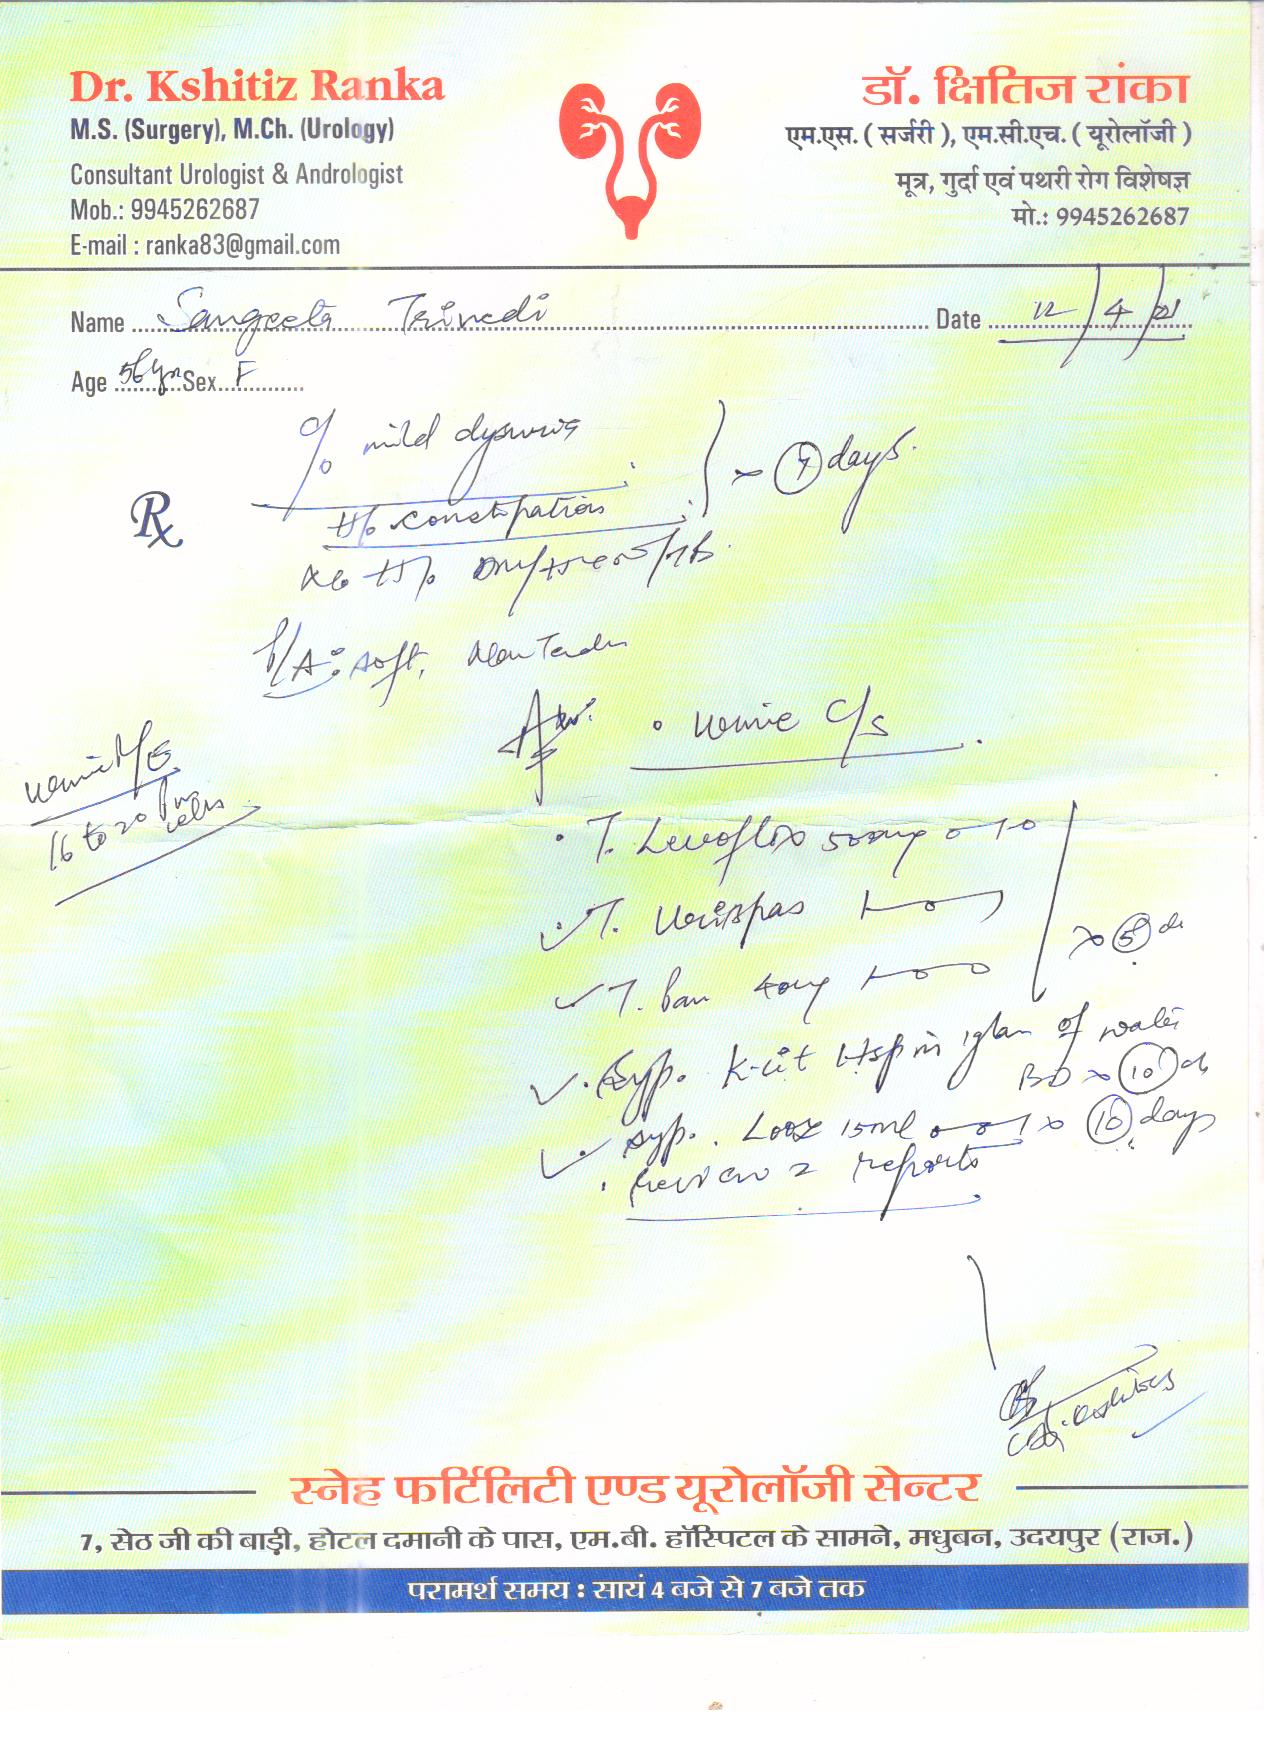 Dr. Kshitiz Ranka
M.S. (Surgery), M.Ch. (Urology)
Consultant Urologist & Andrologist
Mob.: 9945262687
E-mail : ranka83@gmail.com
डॉ. क्षितिज रांका
एम.एस. ( सर्जरी ), एम.सी.एच. ( यूरोलॉजी )
मूत्र, गुर्दा एवं पथरी रोग विशेषज्ञ
मो.: 9945262687
Name Sangeeta Trivedi Date 12/4/21
Age 56 yr Sex F
c/o mild dysuria
H/o constipation
days.
Rx
H/o DM/
P/A: soft, Non Tender
Adv. • urine C/s
urine M/E
16 to 20 pus cells
• T. Levoflox 500mg 0-1-0
T. Urispas
T. Pan 40mg 1-0-0
x 5 d
• Syp. K-cit 1tsp in 1 glass of water
BD x 10 d
Syp. Looz 15ml 0-0-1 x 10 days
• Review reports
स्नेह फर्टिलिटी एण्ड यूरोलॉजी सेन्टर
7, सेठ जी की बाड़ी, होटल दमानी के पास, एम.बी. हॉस्पिटल के सामने, मधुबन, उदयपुर (राज.)
परामर्श समय : सायं 4 बजे से 7 बजे तक